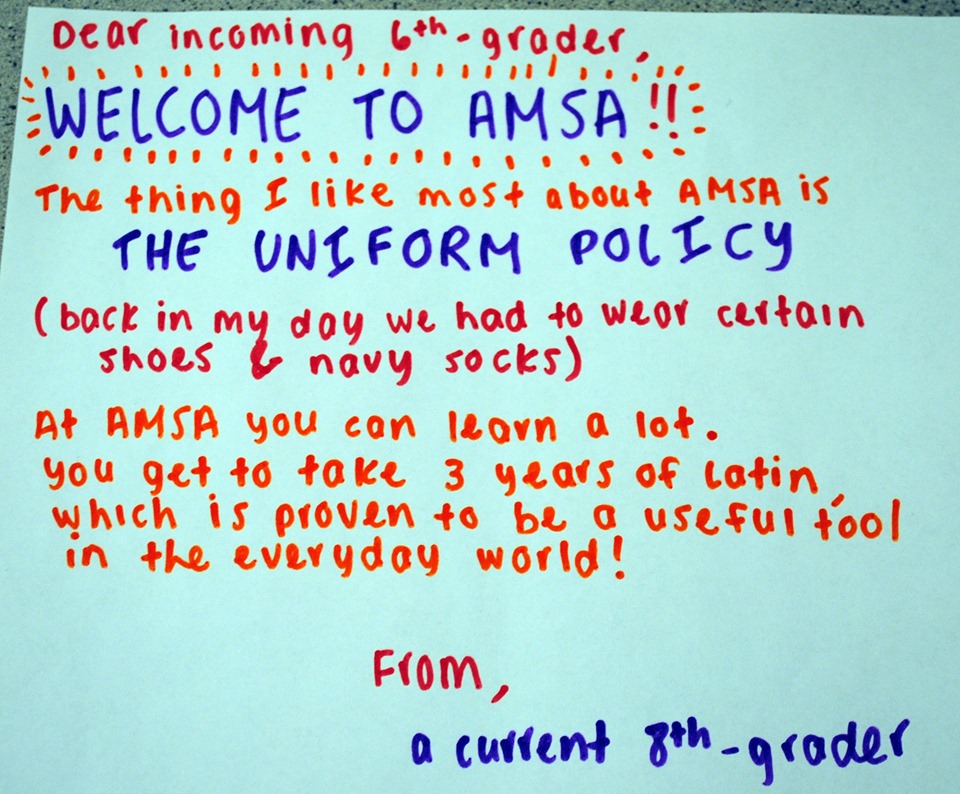 Dear incoming 6th-grader,
WELCOME TO AMSA!!
The thing I like most about AMSA is
THE UNIFORM POLICY
(back in my day we had to wear certain
shoes & navy socks)
At AMSA you can learn a lot.
you get to take 3 years of Latin,
which is proven to be a useful tool
in the everyday world!
From,
a current 8th-grader